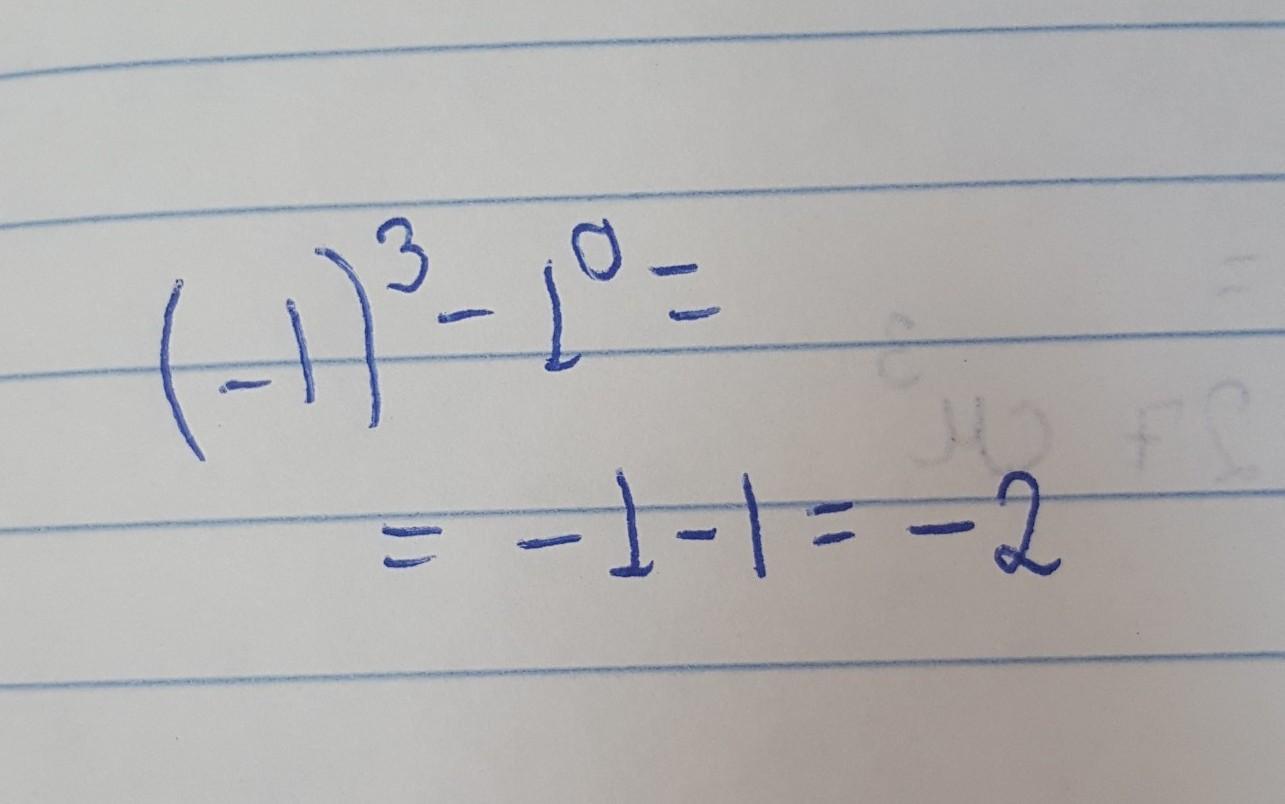 (-1)³ - 1⁰ =
= -1 - 1 = -2